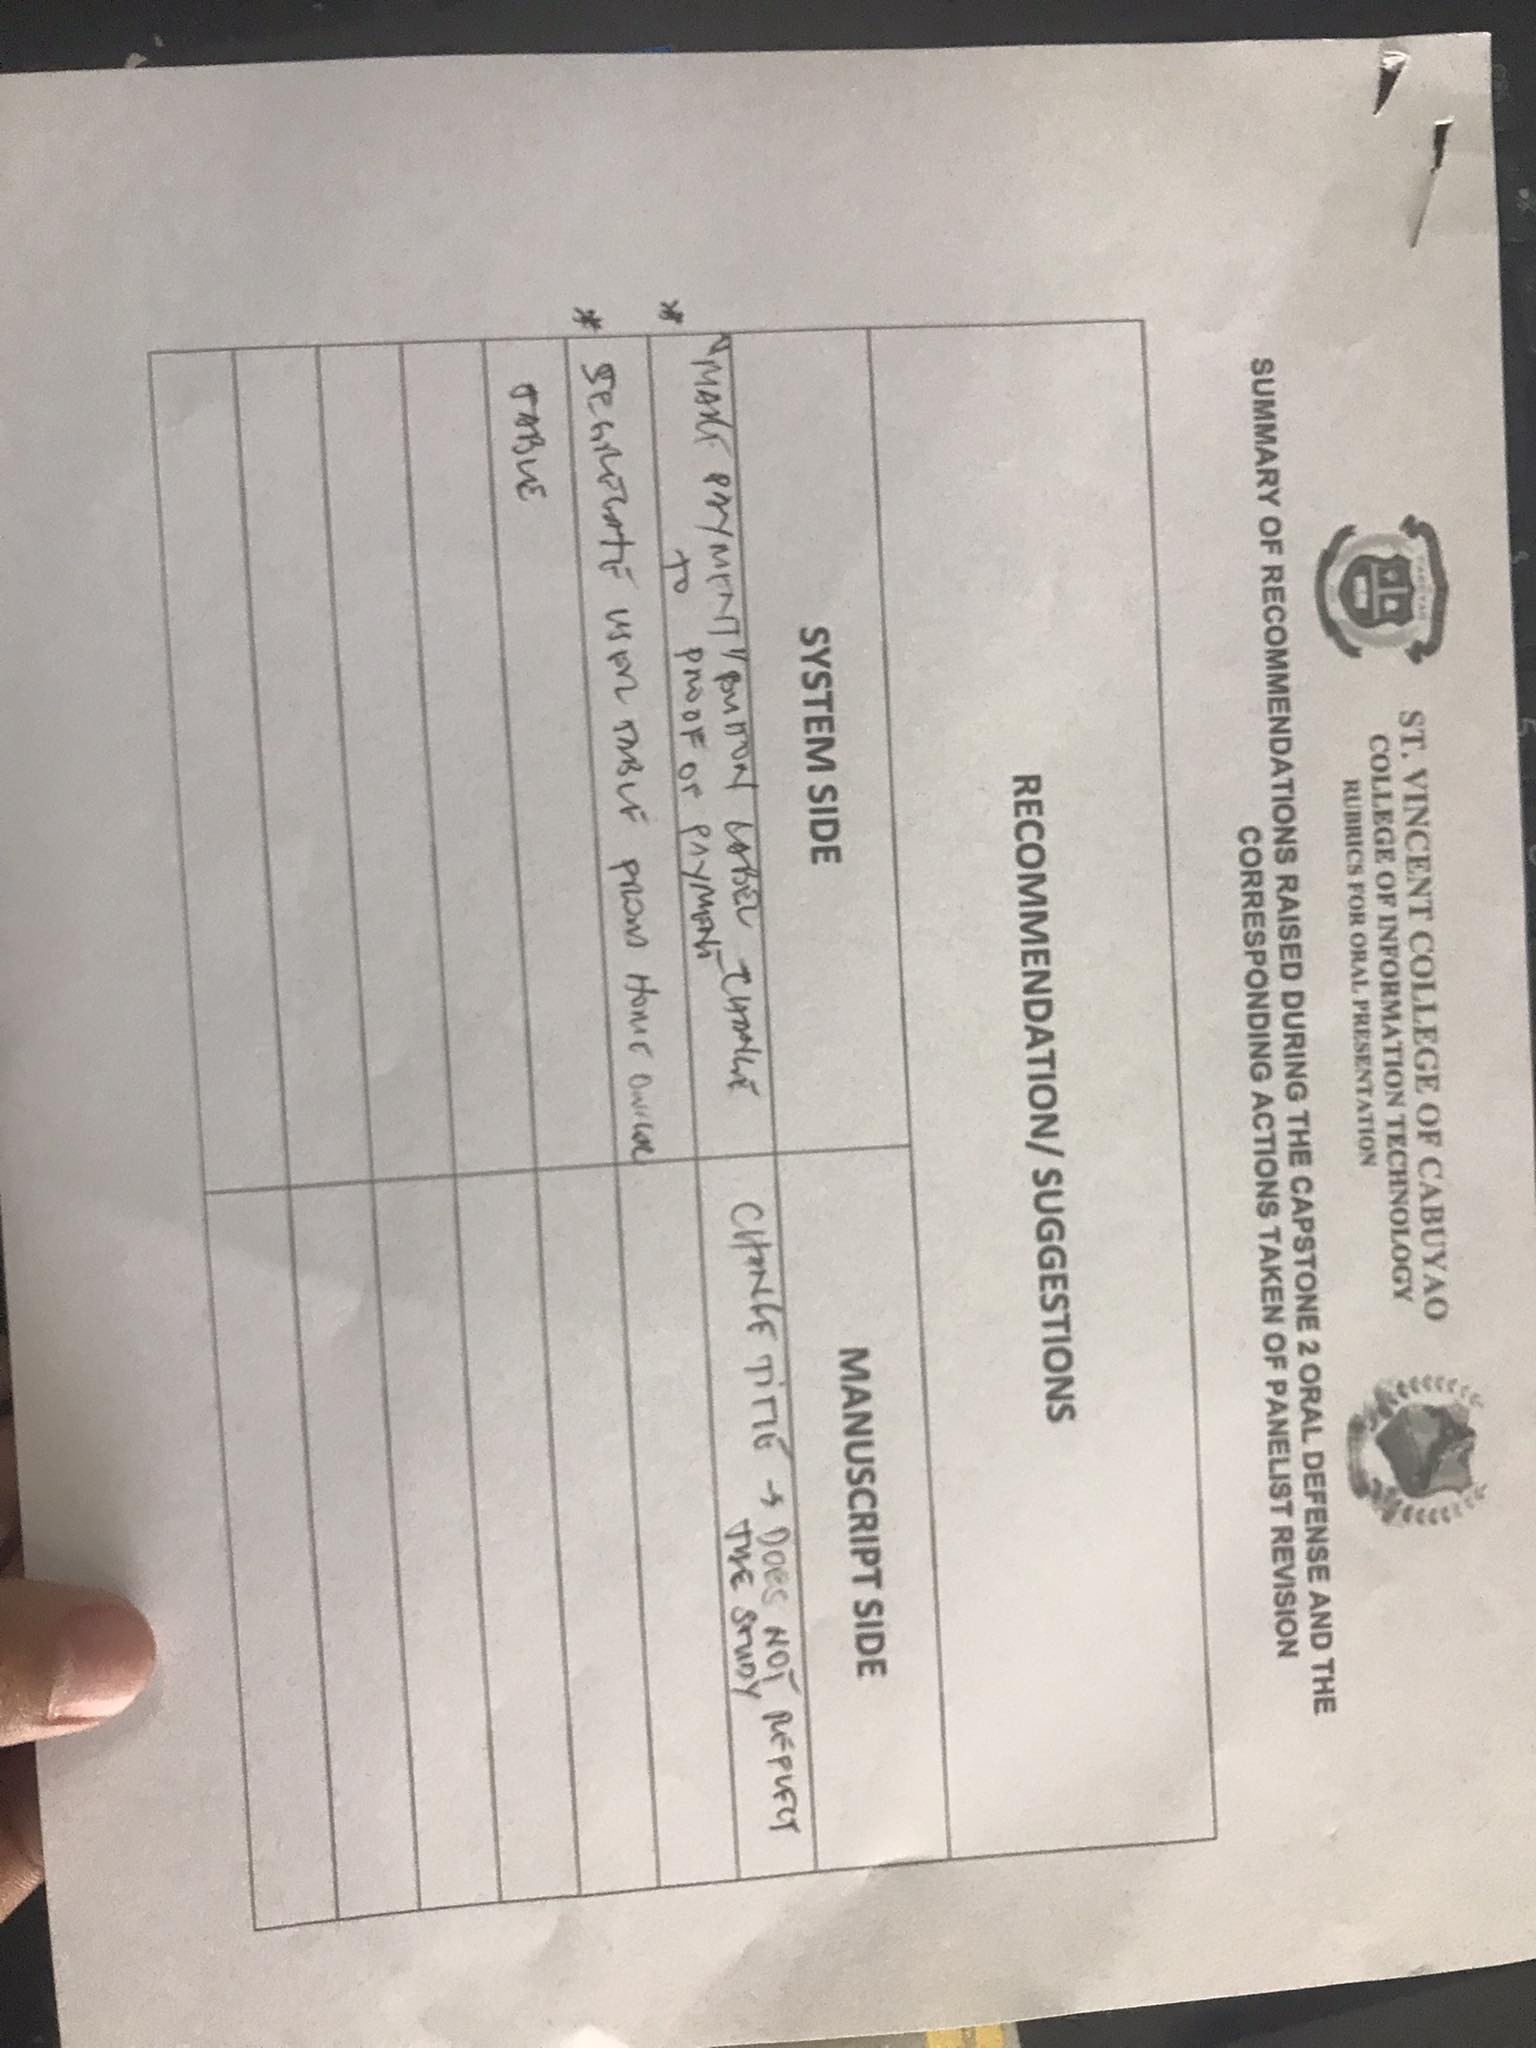 ST. VINCENT COLLEGE OF CABUYAO
COLLEGE OF INFORMATION TECHNOLOGY
RUBRICS FOR ORAL PRESENTATION
SUMMARY OF RECOMMENDATIONS RAISED DURING THE CAPSTONE 2 ORAL DEFENSE AND THE
CORRESPONDING ACTIONS TAKEN OF PANELIST REVISION
RECOMMENDATION/ SUGGESTIONS
SYSTEM SIDE
MANUSCRIPT SIDE
"MAKE PAYMENT" BUTTON LABEL CHANGE
* TO PROOF OF PAYMENT
CHANGE TITLE → DOES NOT REFLECT
THE STUDY
* SEGREGATE USER TABLE FROM HOME OWNER
TABLE